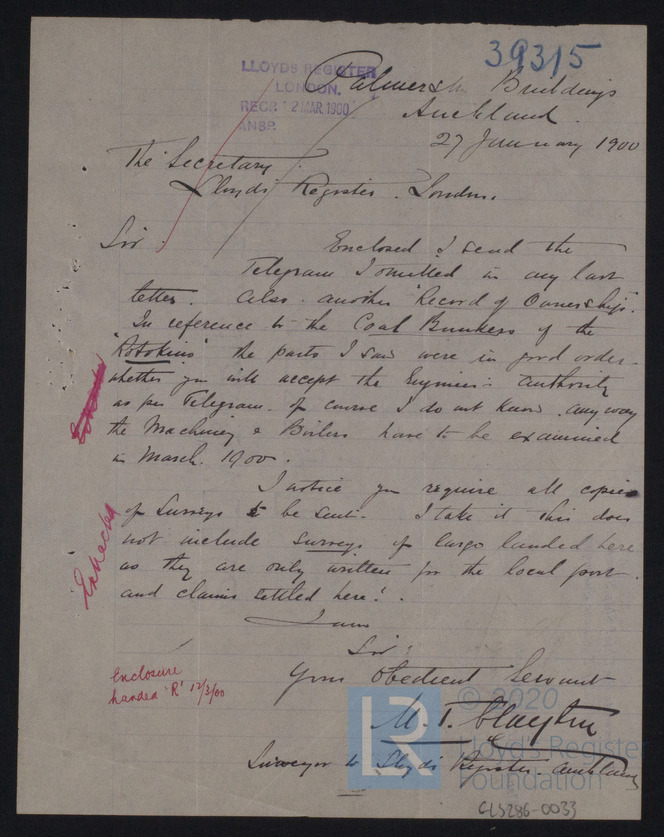 39315
LLOYDS REGISTER
LONDON.
RECD. 12 MAR. 1900
ANSD.
Palmers Buildings
Auckland.
27 January 1900
The Secretary.
Lloyds Register. London.
Sir.
Enclosed I send the
Telegram I omitted in my last
letter. Also. another "Record of Ownership".
In reference to the Coal Bunkers of the
"Rotokino" the parts I saw were in good order.
whether you will accept the Engineers authority
as per Telegram. of course I do not know. anyway
the Machinery & Boilers have to be examined
in March. 1900.
I notice you require all copies
of Surveys to be sent. I take it this does
not include survey. of Cargo landed here
as they are only written for the local port.
and claims settled here!.
I am
Sir.
Your Obedient Servant
M. T. Clayton
Surveyor to Lloyds Register. Auckland
Extracted
Enclosure
handed 'R' 12/3/00
LR
© 2020
Lloyd's Register
Foundation
CLS286-0033